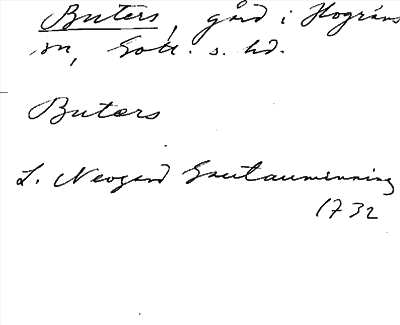 Buters, gård i Hogräns
sn, Gotl. s. hd.
Buters
L. Neogard Gautauminning
1732